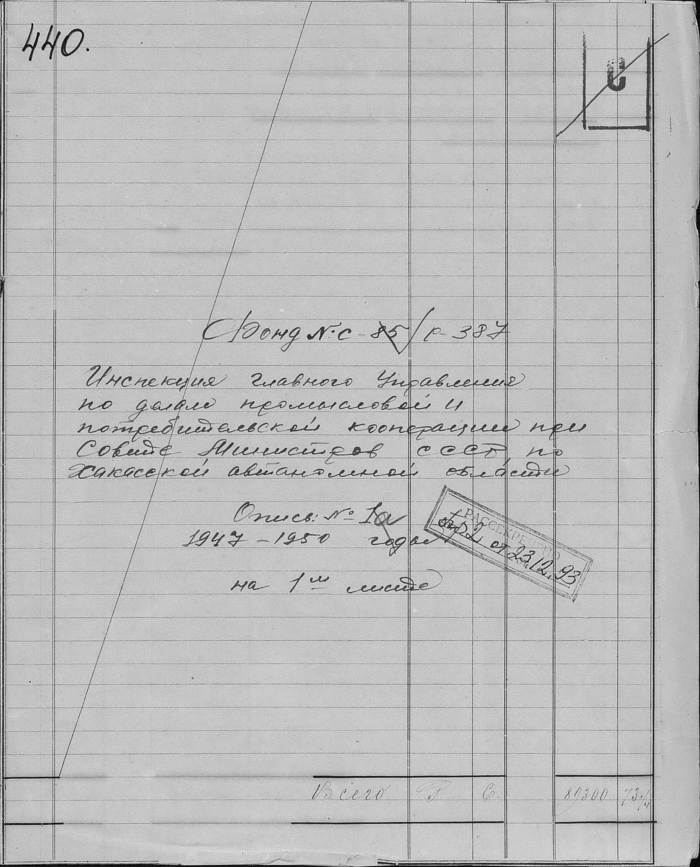 440.
С
Фонд № с-85/р-387
Инспекция главного Управления
по делам промысловой и
потребительской кооперации при
Совете Министров СССР, по
Хакасской автаномной области
Опись: № 1а
1947-1950 годы
на 1м листе
РАССЕКРЕЧЕНО
пр.2. от 23.12.93
Всего
89300